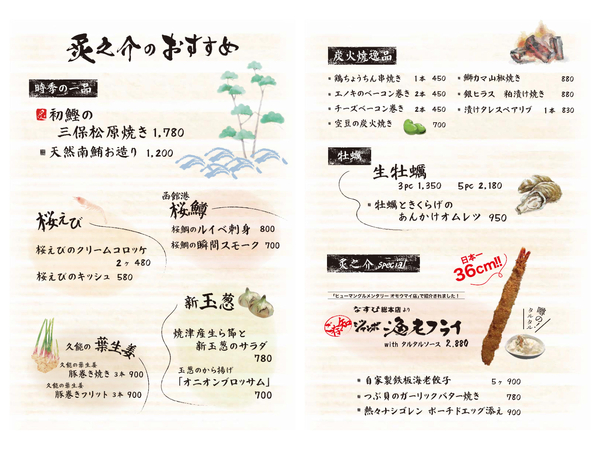 炙之介のおすすめ
時季の一品
初鰹の
三保松原焼き 1,780
天然南鮪お造り 1,200
桜えび
桜えびのクリームコロッケ
2ヶ 480
桜えびのキッシュ 580
函館港
桜鱒
桜鯛のルイベ刺身 800
桜鯛の瞬間スモーク 700
久能の葉生姜
久能の葉生姜
豚巻き焼き 3本 900
久能の葉生姜
豚巻きフリット 3本 900
新玉葱
焼津産生ら節と
新玉葱のサラダ
780
玉葱のから揚げ
「オニオンブロッサム」
700
炭火焼逸品
鶏ちょうちん串焼き 1本 450
エノキのベーコン巻き 2本 450
チーズベーコン巻き 2本 450
空豆の炭火焼き 700
鰤カマ山椒焼き 880
銀ヒラス 粕漬け焼き 880
漬けタレスペアリブ 1本 830
牡蠣
生牡蠣
3pc 1,350 5pc 2,180
牡蠣ときくらげの
あんかけオムレツ 950
炙之介 special
日本一
36cm!!
「ヒューマングルメンタリー オモウマイ店」で紹介されました!
なすび総本店より
ジャンボ海老フライ
with タルタルソース 2,880
噂の!
タルタル
自家製鉄板海老餃子 5ヶ 900
つぶ貝のガーリックバター焼き 780
熱々ナシゴレン ポーチドエッグ添え 900